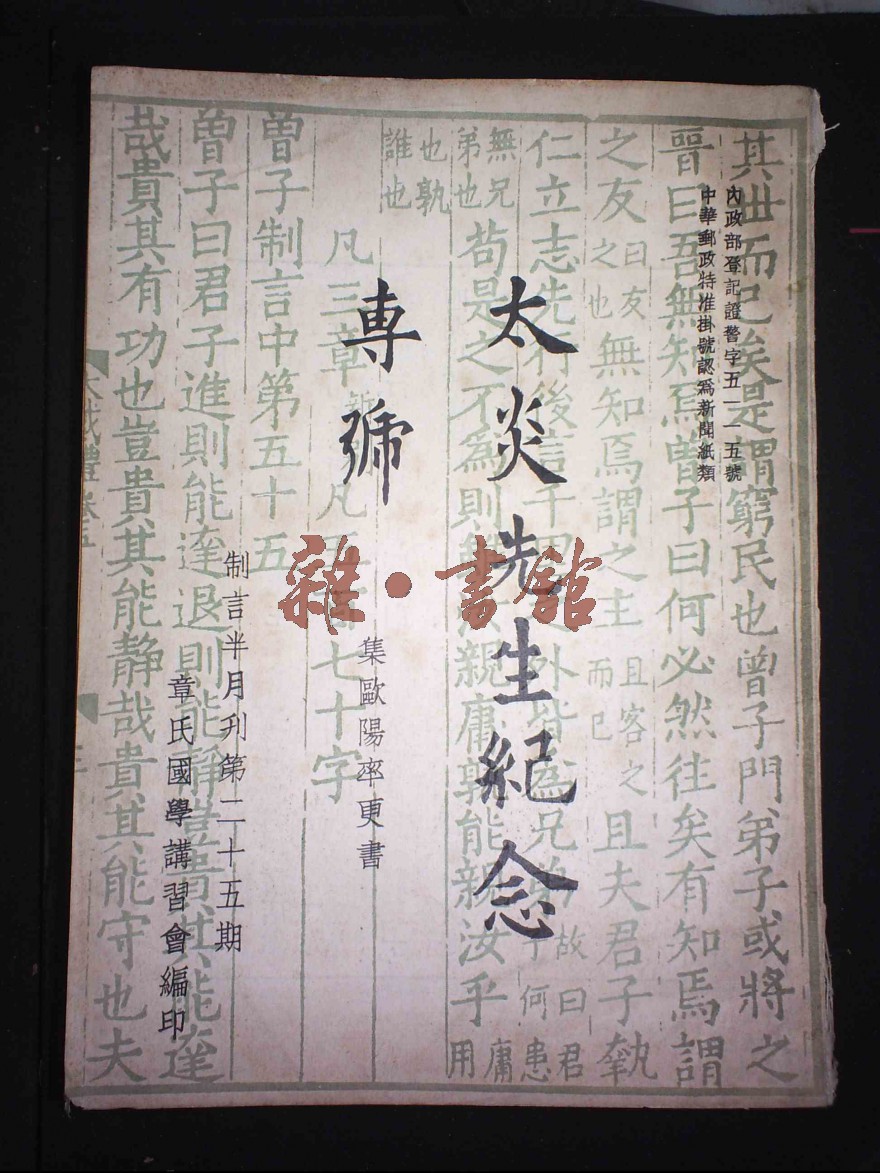 內政部登記證警字五一一五號
中華郵政特准掛號認爲新聞紙類
太炎先生紀念
專號
集歐陽率更書
制言半月刊第二十五期
章氏國學講習會編印
雜·書館
其世而已矣是謂窮民也曾子門弟子或將之
晉曰吾無知焉曾子曰何必然往矣有知焉謂
之友曰友之也無知焉謂之主且客之而已且夫君子執
仁立志先行後言千里之外皆為兄弟故曰君子何患
無兄弟也苟是之不為則雖汝親庸孰能親汝乎庸用
也孰誰也
凡三章 凡五百七十字
曾子制言中第五十五
曾子曰君子進則能達退則能靜豈貴其能達
哉貴其有功也豈貴其能靜哉貴其能守也夫
大戴禮卷五